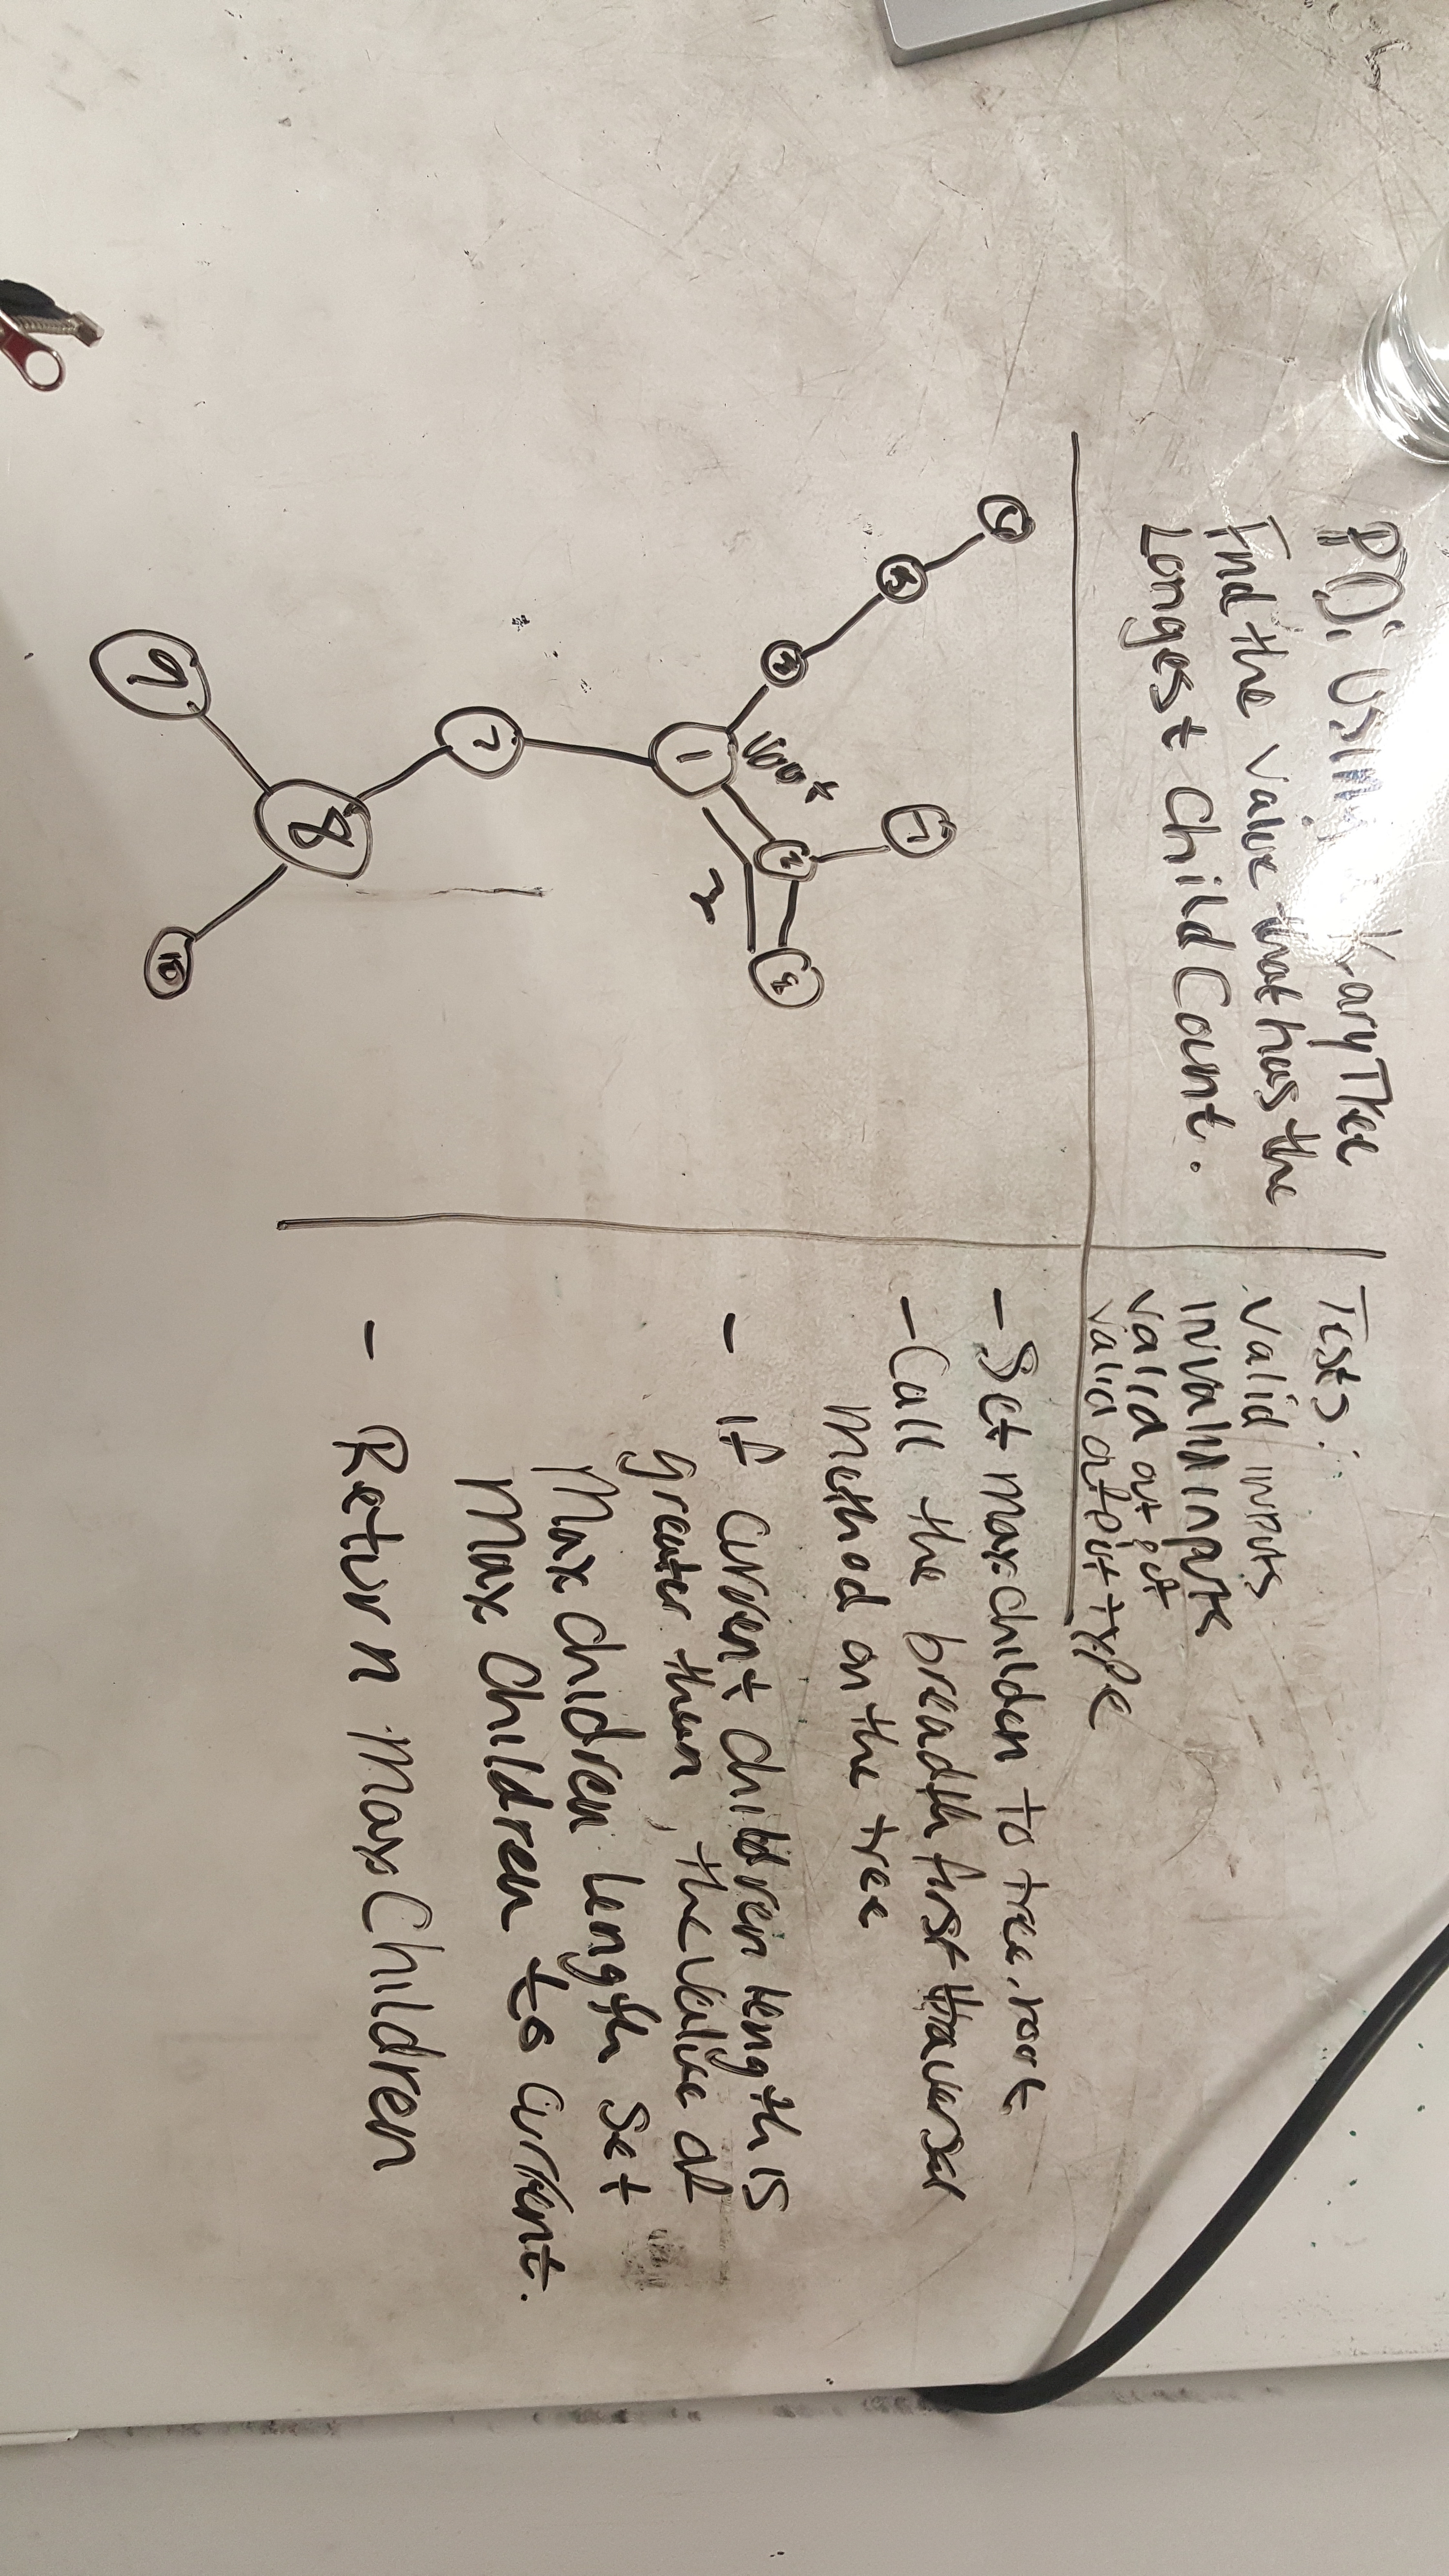 PD: Using K-ary Tree
Find the value that has the
Longest Child Count.
Tests:
valid inputs
invalid inputs
valid output
valid output type
root
1
7
8
10
3
- Set max children to tree.root
- Call the breadth first traversal
method on the tree
- if current children length is
greater than, the value of
Max children length set
Max children to current.
- Return Max Children